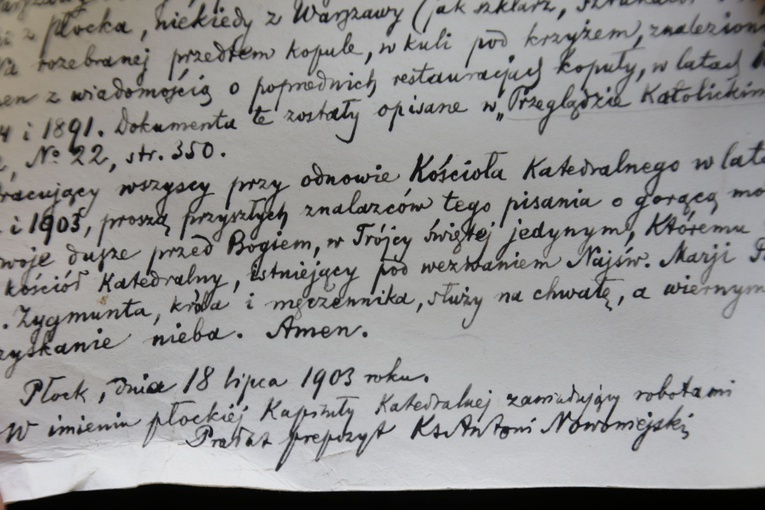 z Płocka, niekiedy z Warszawy (jak szklarz,
rozebranej przedtem kopule, w kuli pod krzyżem, znaleziono
z wiadomością o poprzednich restauracjach kopuły, w latach
i 1891. Dokumenta te zostały opisane w „Przeglądzie Katolickim
, № 22, str. 350.
pracujący wszyscy przy odnowie Kościoła Katedralnego w lata
i 1903, proszą przyszłych znalazców tego pisania o gorącą mo
swoje dusze przed Bogiem, w Trójcy Świętej jedynym, Któremu
kościół Katedralny, istniejący pod wezwaniem Najśw. Marji
. Zygmunta, króla i męczennika, służy na chwałę, a wiernym
zyskanie nieba. Amen.
Płock, dnia 18 lipca 1903 roku.
W imieniu płockiej Kapituły Katedralnej zawiadujący robotami
Prałat prepozyt Ks. Antoni Nowowiejski